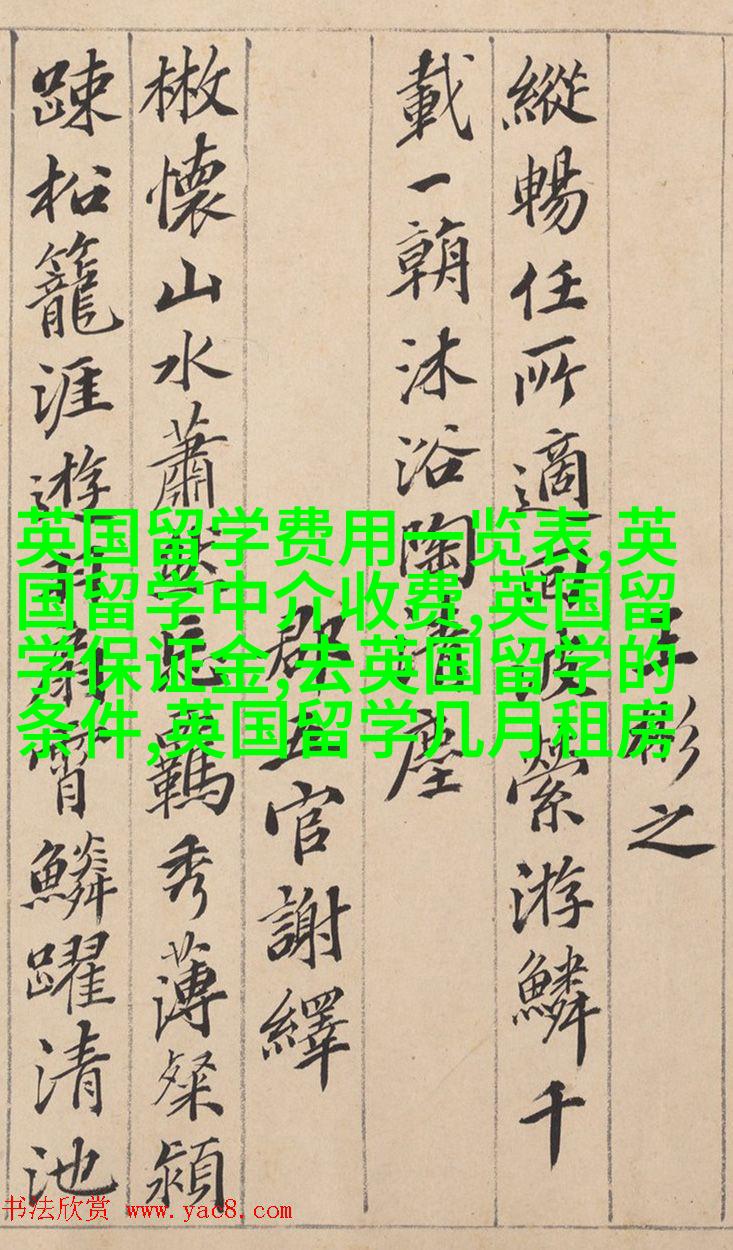 王彬之
縱暢任所適回波縈游鱗千
載一朝沐浴陶清塵
郡五官謝繹
散懷山水蕭然忘羈秀薄粲穎
踈松籠涯遊羽扇霄鱗躍清池
英国留学费用一览表,英
国留学中介收费,英国留
学保证金,去英国留学的
条件,英国留学几月租房
书法欣赏 www.yac8.com